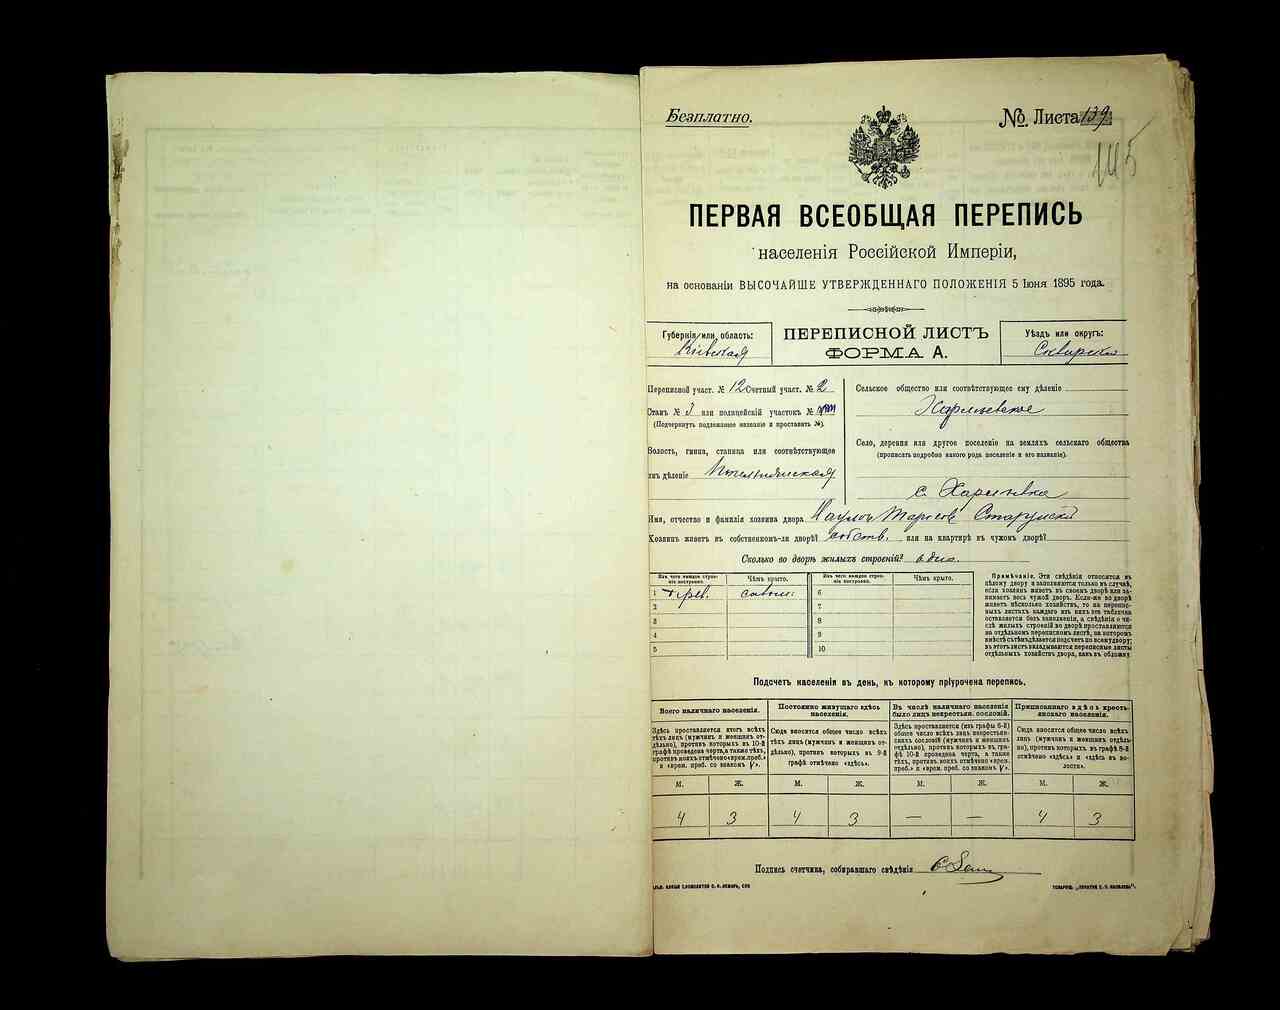 Безплатно.
№ Листа 139
145
ПЕРВАЯ ВСЕОБЩАЯ ПЕРЕПИСЬ
населенія Россійской Имперіи,
на основаніи ВЫСОЧАЙШЕ УТВЕРЖДЕННАГО ПОЛОЖЕНІЯ 5 Іюня 1895 года.
Губернія или область:
Кіевская
ПЕРЕПИСНОЙ ЛИСТЪ
ФОРМА А.
Уѣздъ или округъ:
Сквирскій
Переписной участ. № 12 Счетный участ. № 2
Станъ № 3 или полицейскій участокъ №
(Подчеркнуть подлежащее названіе и проставить №).
Волость, гмина, станица или соотвѣтствующее
имъ дѣленіе
Сельское общество или соотвѣтствующее ему дѣленіе
Харлѣевское
Село, деревня или другое поселеніе на земляхъ сельскаго общества
(прописать подробно какого рода поселеніе и его названіе).
с. Харлѣевка
Имя, отчество и фамилія хозяина двора
Хозяинъ живетъ въ собственномъ-ли дворѣ? собств. или на квартирѣ въ чужомъ дворѣ?
Сколько во дворѣ жилыхъ строеній? одно.
Изъ чего каждое строеніе построено.
Чѣмъ крыто.
Изъ чего каждое строеніе построено.
Чѣмъ крыто.
1 дерев. солом. 6
2 7
3 8
4 9
5 10
Примѣчаніе. Эти свѣдѣнія относятся къ
цѣлому двору и заполняются только въ случаѣ,
если хозяинъ живетъ въ своемъ дворѣ или занимаетъ
весь чужой дворъ. Если-же во дворѣ
живетъ нѣсколько хозяйствъ, то на переписныхъ
листахъ каждаго изъ нихъ эта табличка
оставляется безъ заполненія, а свѣдѣнія о числѣ
жилыхъ строеній во дворѣ проставляются
на отдѣльномъ переписномъ листѣ, на которомъ
вмѣстѣ съ тѣмъ дѣлается подсчетъ по всему двору;
въ этотъ листъ вкладываются переписные листы
отдѣльныхъ хозяйствъ двора, какъ въ обложку.
Подсчетъ населенія въ день, къ которому пріурочена перепись.
Всего наличнаго населенія.
Постоянно живущаго здѣсь населенія.
Въ числѣ наличнаго населенія было лицъ некрестьян. сословій.
Приписаннаго здѣсь крестьянскаго населенія.
Здѣсь проставляется итогъ всѣхъ тѣхъ лицъ (мужчинъ и женщинъ отдѣльно), противъ которыхъ въ 10-й графѣ проведена черта, а также тѣхъ, противъ коихъ отмѣчено «врем. преб.» и «врем. преб. со знакомъ V».
Сюда вносится общее число всѣхъ тѣхъ лицъ (мужчинъ и женщинъ отдѣльно), противъ которыхъ въ 9-й графѣ отмѣчено «здѣсь».
Здѣсь проставляется (изъ графы 6-й) общее число всѣхъ лицъ некрестьянскихъ сословій (мужчинъ и женщинъ отдѣльно), противъ которыхъ въ графѣ 10-й проведена черта, а также тѣхъ, противъ коихъ отмѣчено «врем. преб.» и «врем. преб. со знакомъ V».
Сюда вносится общее число всѣхъ лицъ (мужчинъ и женщинъ отдѣльно), противъ которыхъ въ графѣ 8-й отмѣчено «здѣсь» и «здѣсь въ волости».
М. Ж. М. Ж. М. Ж. М. Ж.
4 3 4 3 — — 4 3
Подпись счетчика, собиравшаго свѣдѣнія